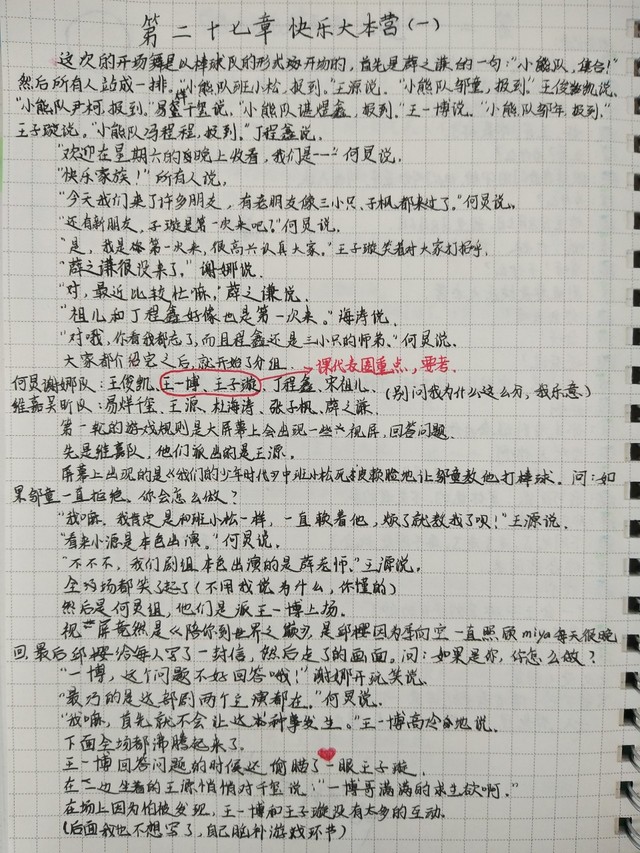 第二十七章 快乐大本营(一)
这次的开场舞是以棒球队的形式开场的，首先是薛之谦的一句："小熊队，集合!"
然后所有人站成一排。"小熊队班小松，报到。"王源说。"小熊队邬童，报到。"王俊凯说。
"小熊队尹柯，报到。"易烊千玺说，"小熊队谌煜鑫，报到。"王一博说。"小熊队邹年，报到。"
王子璇说，"小熊队冯程程，报到。"丁程鑫说。
"欢迎在星期六的晚上收看，我们是——"何炅说，
"快乐家族!"所有人说。
"今天我们来了许多朋友，有老朋友像三小只、子枫都来过了。"何炅说。
"还有新朋友，子璇是第一次来吧?"何炅说。
"是，我是第一次来，很高兴认真大家。"王子璇笑着对大家打招呼。
"薛之谦很没来了。"谢娜说。
"对，最近比较忙嘛，"薛之谦说。
"祖儿和丁程鑫好像也是第一次来。"海涛说。
"对哦，你看我都忘了，而且程鑫还是三小只的师弟。"何炅说。
大家都介绍完之后，就开始了分组。 课代表圈重点，要考.
何炅谢娜队：王俊凯、王一博、王子璇、丁程鑫、宋祖儿。
(别问我为什么这么分，我乐意)
维嘉吴昕队：易烊千玺、王源、杜海涛、张子枫、薛之谦。
第一轮的游戏规则是大屏幕上会出现一些视屏，回答问题.
先是维嘉队，他们派出的是王源。
屏幕上出现的是《我们的少年时代》中班小松死皮赖脸地让邬童教他打棒球。问：如
果邬童一直拒绝，你会怎么做?
"我嘛，我肯定是和班小松一样，一直软着他，烦了就教我了呗!"王源说.
"看来小源是本色出演。"何炅说。
"不不不，我们剧组本色出演的是薛老师。"王源说。
全场都笑了起了(不用我说为什么，你懂的)
然后是何炅组，他们是派王一博上场。
视屏竟然是《陪你到世界之巅》，是邱樱因为季向空一直照顾miya每天很晚
回，最后邱樱给每人写了一封信，然后走了的画面。问：如果是你，你怎么做?
"一博，这个问题不好回答哦!"谢娜开玩笑说。
"最巧的是这部剧两个主演都在。"何炅说。
"我嘛，首先就不会让这种事发生。"王一博高冷地说。
下面全场都沸腾起来了。
王一博回答问题的时候还偷瞄了一眼王子璇.
在一边坐着的王源悄悄对千玺说："一博哥满满的求生欲啊。"
在场上因为怕被发现，王一博和王子璇没有太多的互动.
(后面我也不想写了，自己脑补游戏环节)